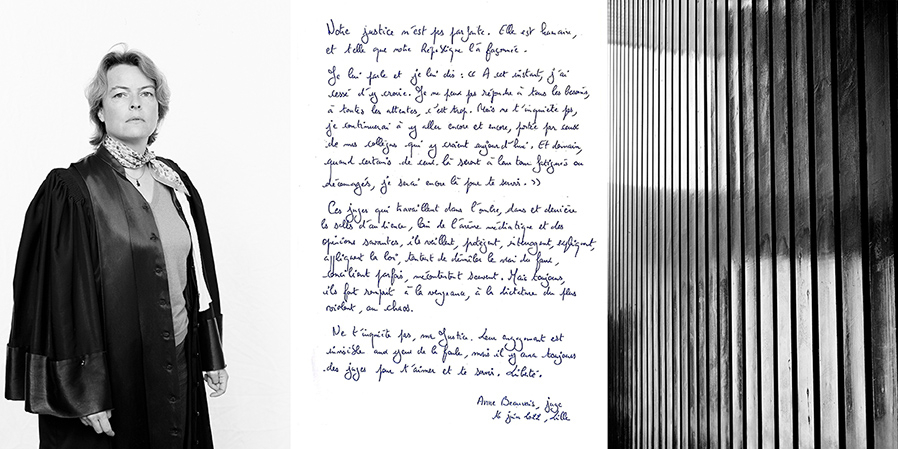 Notre justice n'est pas parfaite. Elle est humaine,
et telle que notre République l'a façonnée.
Je lui parle et je lui dis : « A cet instant, j'ai
cessé d'y croire. Je ne peux pas répondre à tous les besoins,
à toutes les attentes, c'est trop. Mais ne t'inquiète pas,
je continuerai à y aller encore et encore, portée par ceux
de mes collègues qui y croient aujourd'hui. Et demain,
quand certains de ceux-là seront à leur tour fatigués ou
découragés, je serai encore là pour te servir. »
Ces juges qui travaillent dans l'ombre, dans et derrière
les salles d'audience, loin de l'arène médiatique et des
opinions savantes, ils veillent, protègent, interrogent, expliquent,
appliquent la loi, tentent de démêler le vrai du faux,
concilient parfois, mécontentent souvent. Mais toujours,
ils font rempart à la vengeance, à la dictature du plus
violent, au chaos.
Ne t'inquiète pas, ma Justice. Leur engagement est
invisible aux yeux de la foule, mais il y aura toujours
des juges pour t'aimer et te servir.
Anne Beauvais, juge
juin, Lille